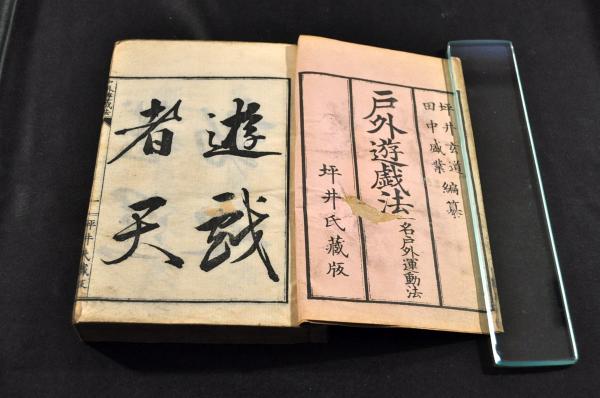 坪井玄道
田中盛業
編纂
戸外遊戯法
一名戸外運動法
坪井氏藏版
遊戯
者天
一
坪井氏藏版